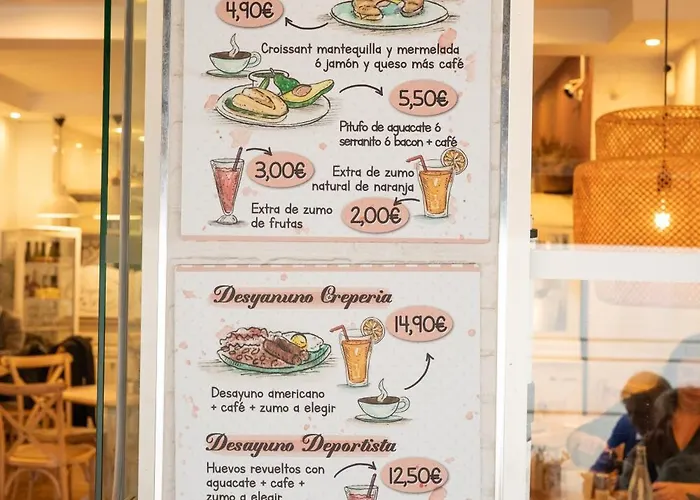 4,90€
Croissant mantequilla y mermelada
ó jamón y queso más café
5,50€
Pitufo de aguacate ó
serranito ó bacon + café
3,00€
Extra de zumo
natural de naranja
Extra de zumo
de frutas
2,00€
Desyanuno Creperia
14,90€
Desayuno americano
+ café + zumo a elegir
Desayuno Deportista
Huevos revueltos con
aguacate + cafe +
zumo a elegir
12,50€